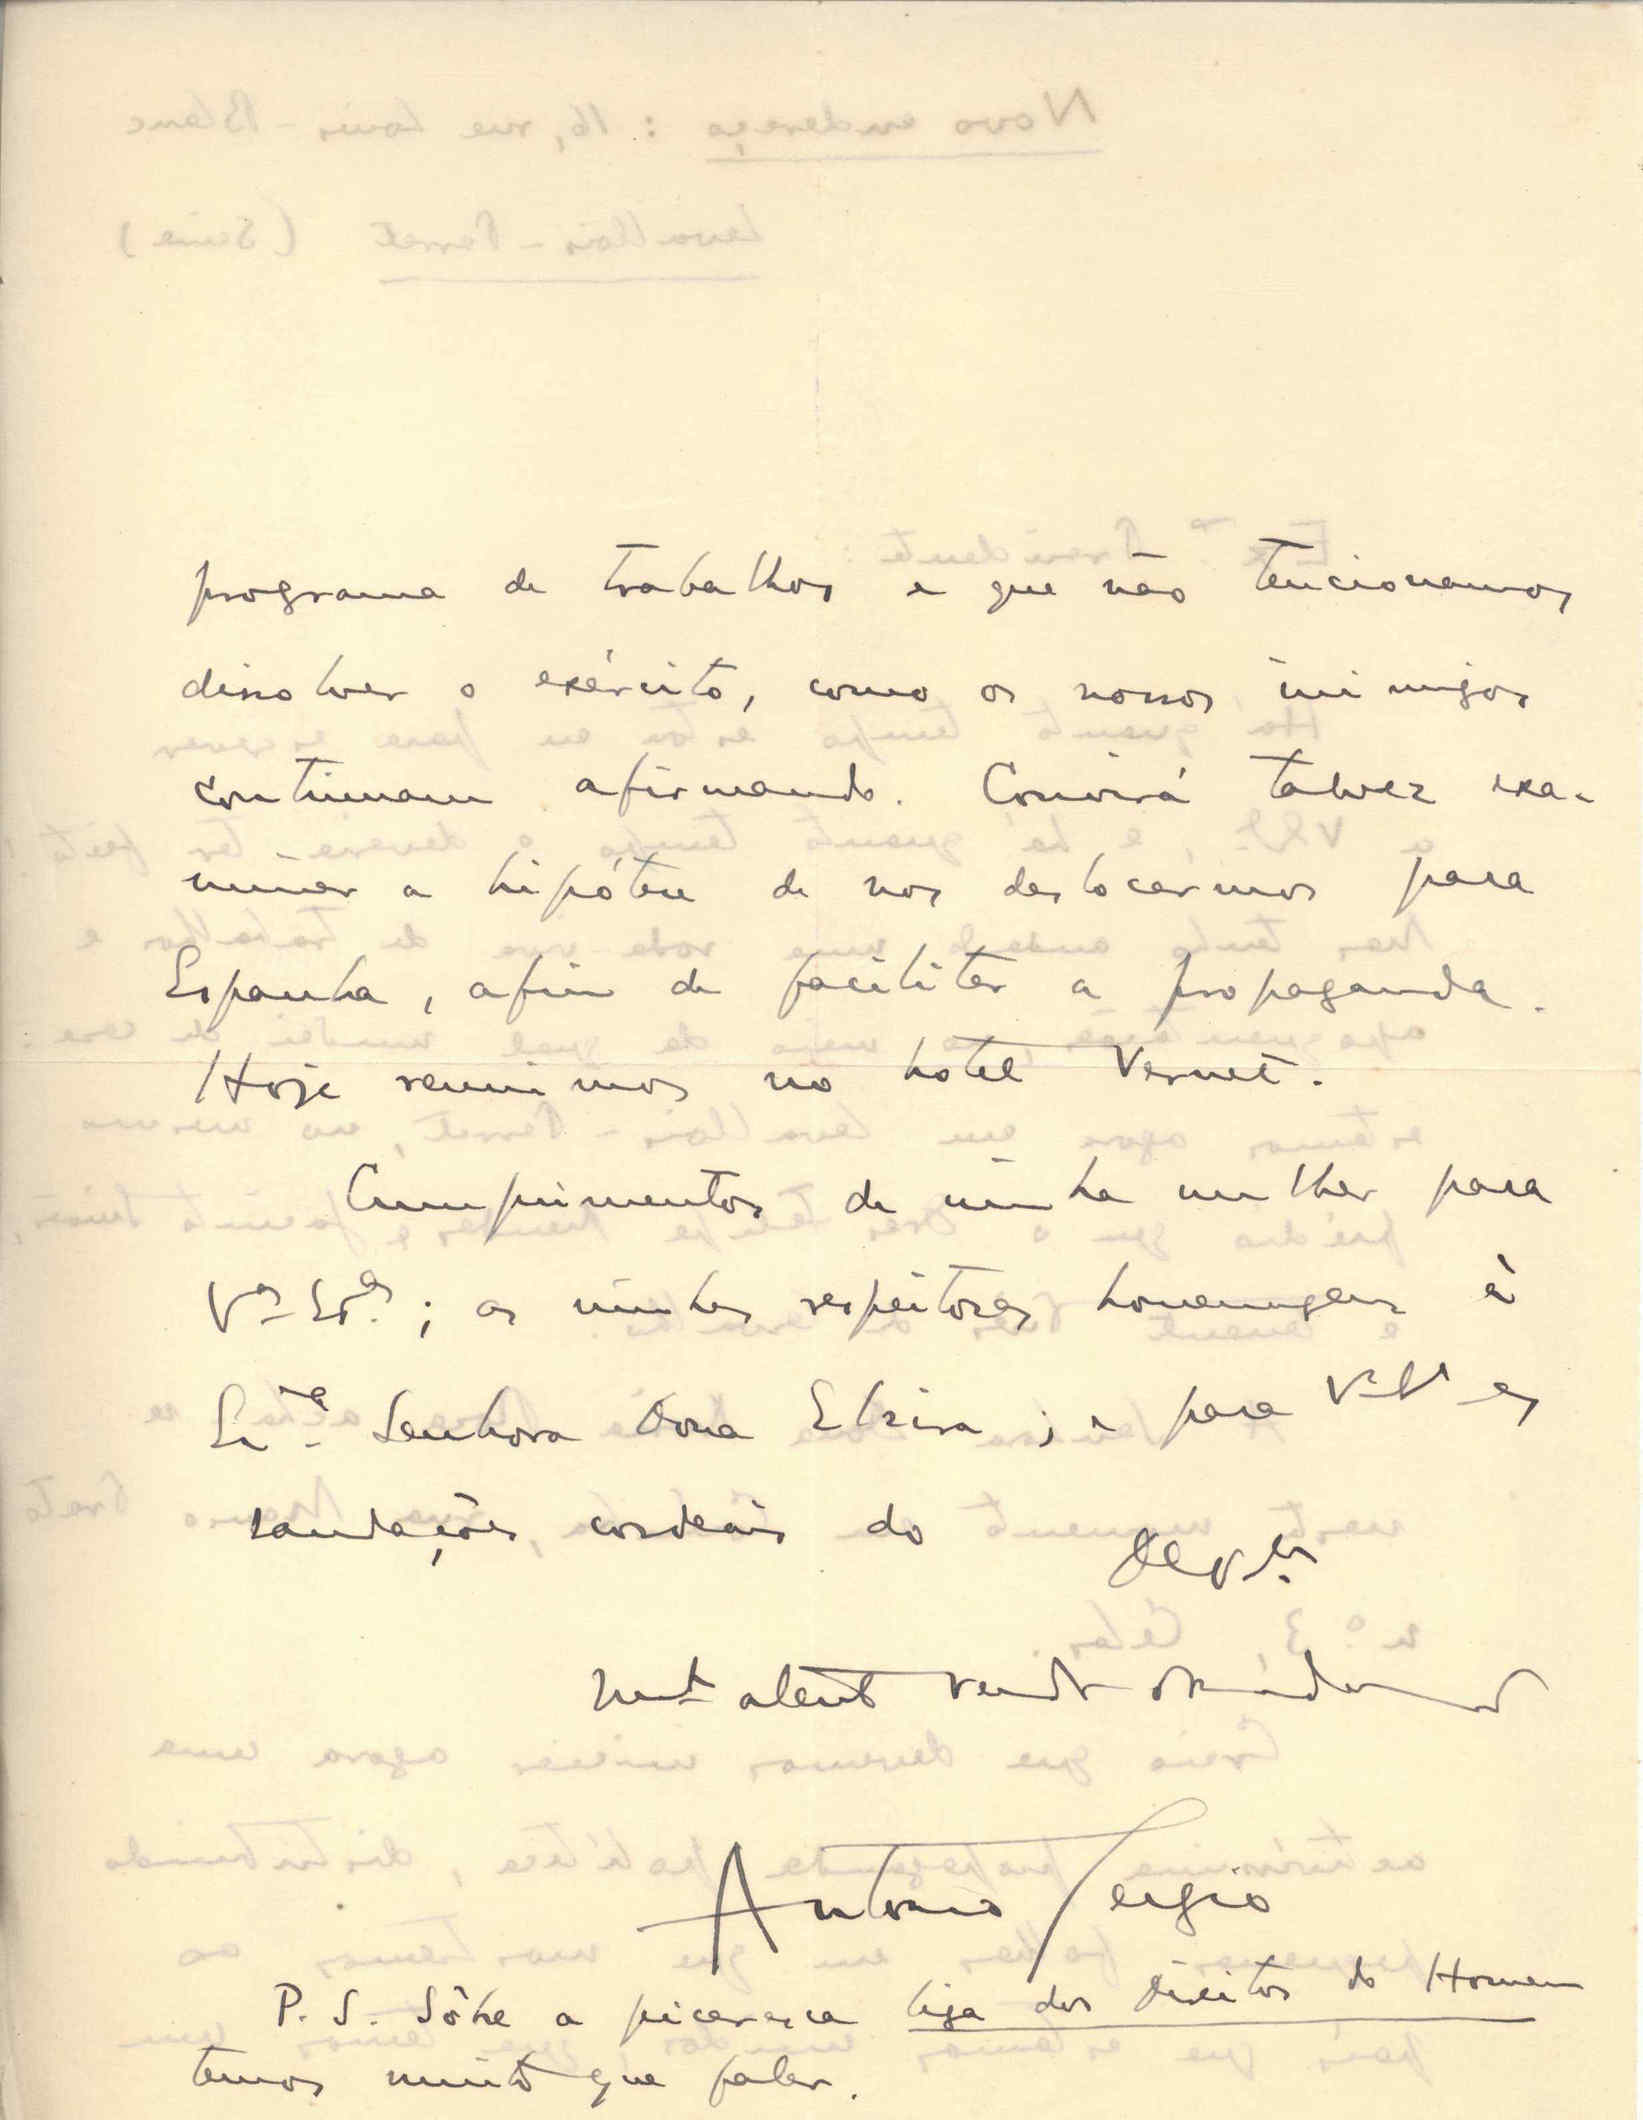 programa de trabalhos e que não tencionamos
dissolver o exército, como os nossos inimigos
continuam afirmando. Convirá talvez exa-
minar a hipótese de nos deslocarmos para
Espanha, afim de facilitar a propaganda.
Hoje reunimos no hotel Vernet.
Cumprimentos de minha mulher para
Vas Exas.; as minhas respeitosas homenagens à
Exma. Senhora Dona Elzira; e para V. Exa as
saudações cordeais do
De V. Exa.
Mto atento vendor obrigado
Antonio Sergio
P. S. Sôbre a picaresca Liga dos Direitos do Homem
temos muito que falar.